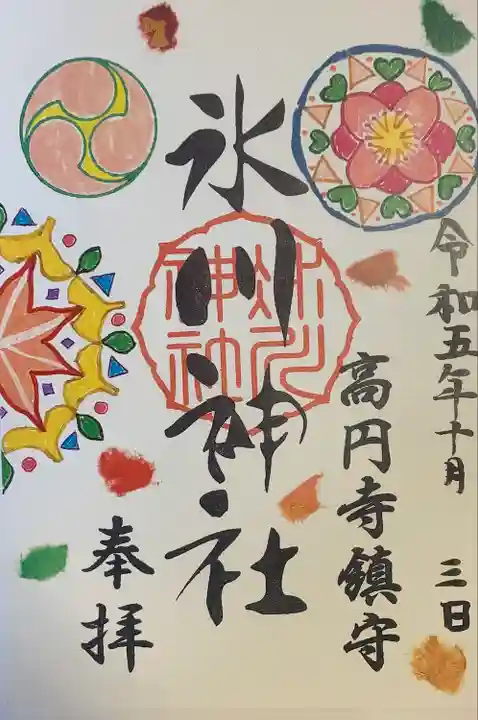 令和五年十月三日
高円寺鎮守
氷川神社
氷川神社
奉拝